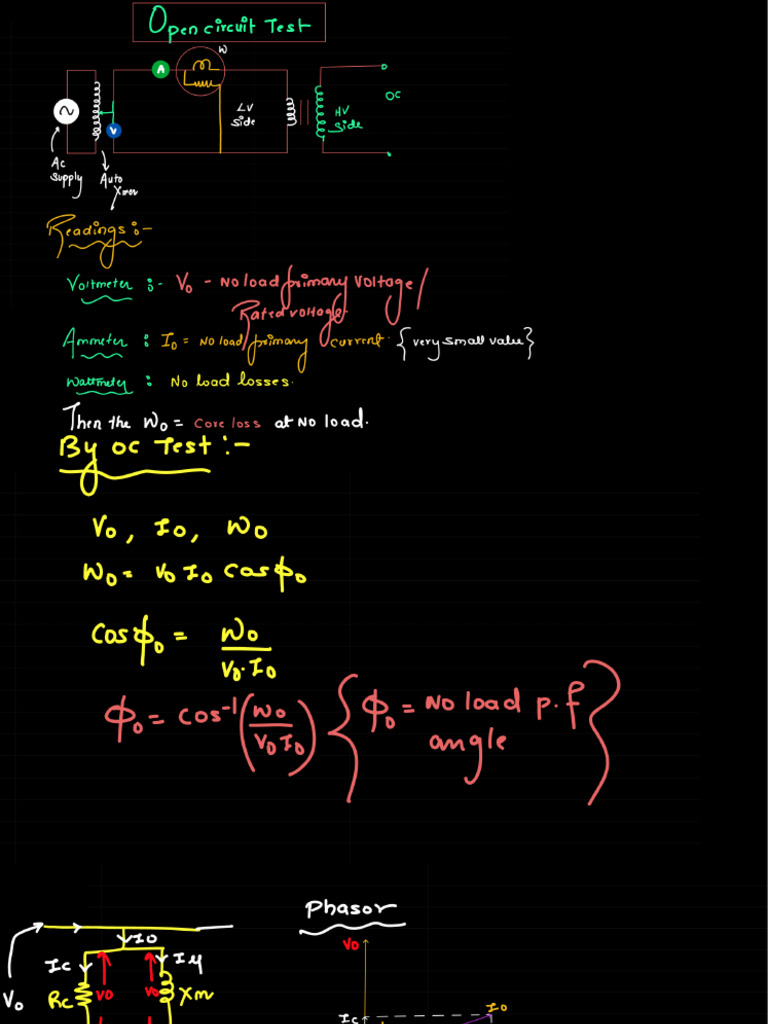 Open circuit Test
W
A
LV
side
HV
side
OC
V
Ac
supply
Auto
Xmer
Readings :-
Voltmeter :- V0 - No load primary voltage /
Rated voltage
Ammeter : I0 = No load primary current {very small value}
Wattmeter : No load losses.
Then the W0 = Core loss at No load.
By OC Test :-
V0, I0, W0
W0 = V0 I0 cosϕ0
cosϕ0 = W0 / V0·I0
ϕ0 = cos⁻¹(W0 / V0 I0) {ϕ0 = No load p.f angle}
Phasor
I0
Ic
Iμ
V0
V0
V0
Rc
Xm
V0
Ic
I0